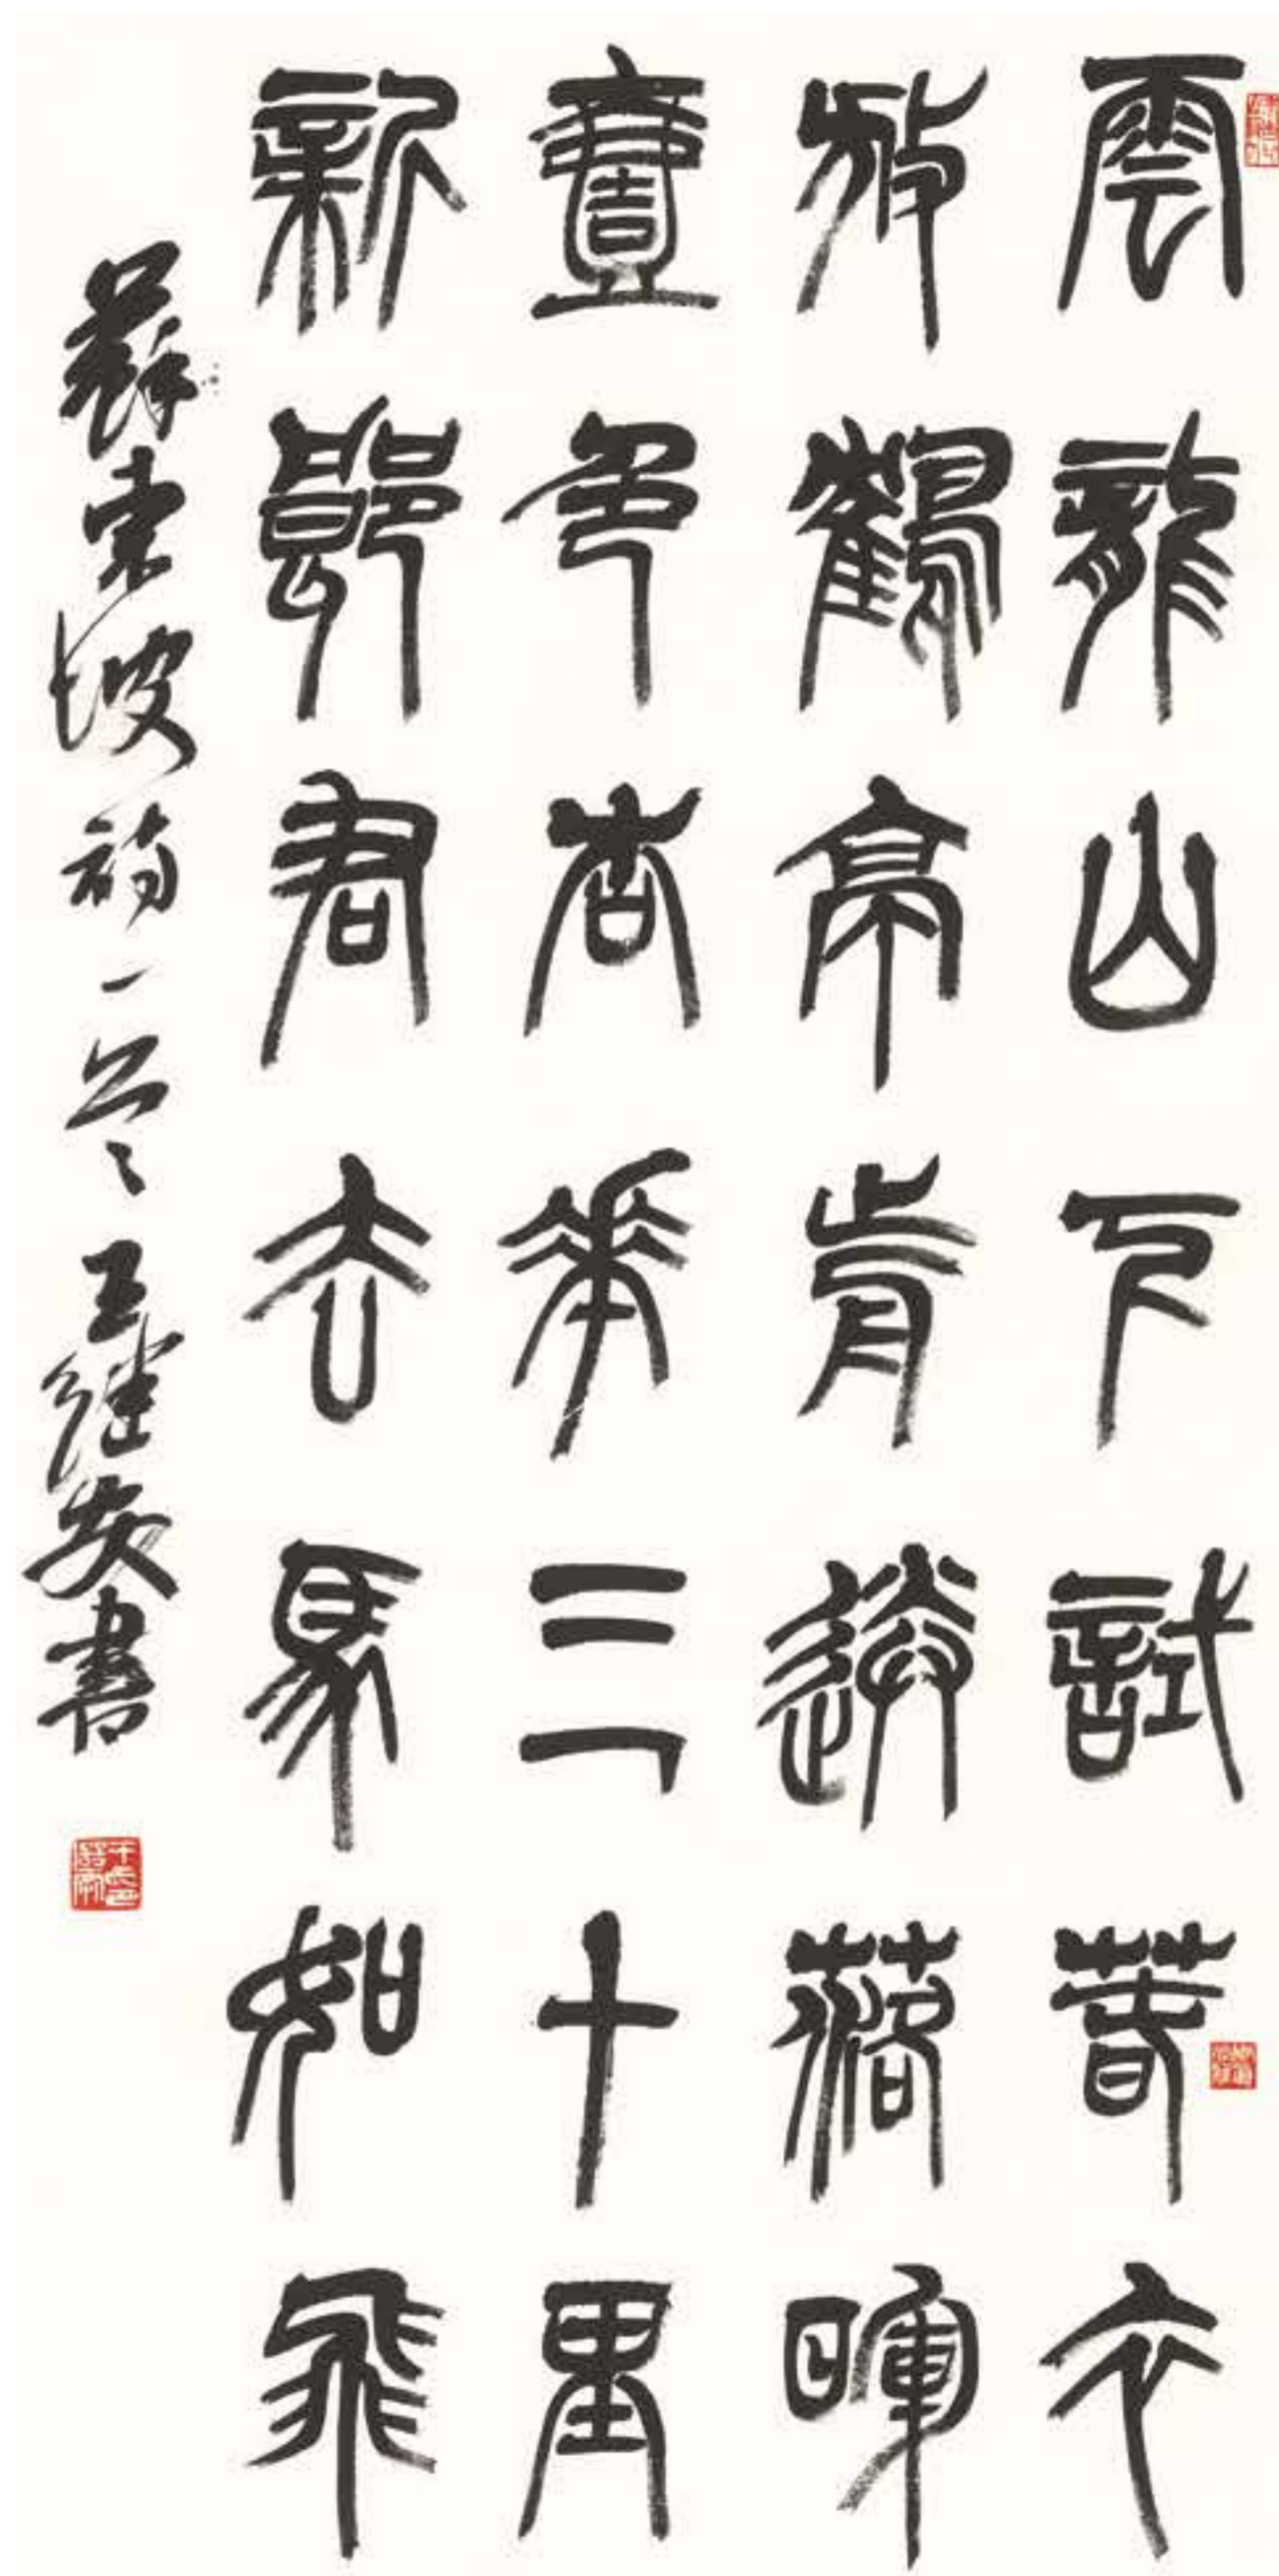 雲龍山下試春衣
放鶴亭前送落暉
壹色杏華三十里
新郎君去馬如飛
蘇東坡詩一首王継安書